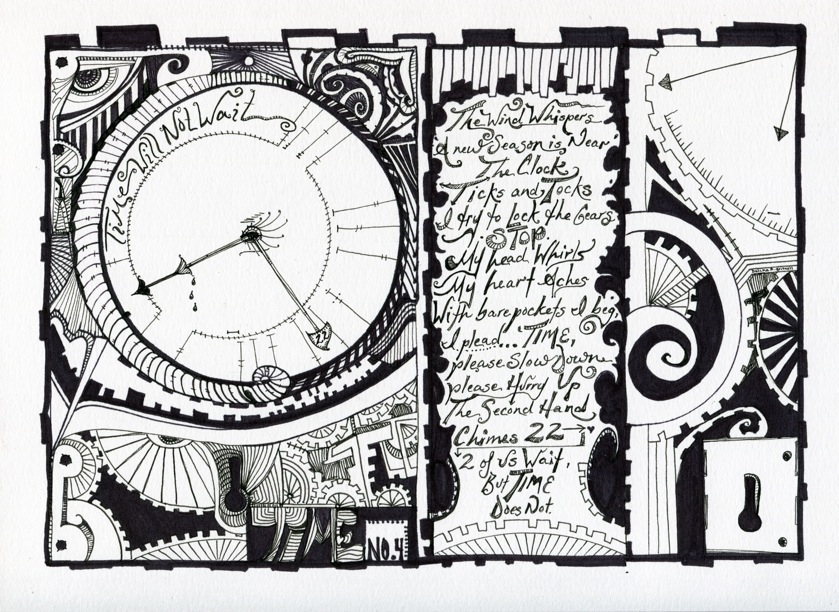 Time Will Not Wait
22
No. 4
The Wind Whispers
A new Season is Near
The Clock
Ticks and Tocks
I try to lock the Gears
STOP
My head Whirls
My heart Aches
With bare pockets I beg,
I plead... TIME,
please Slow Down
please Hurry Up
The Second Hand
Chimes 22
2 of us Wait,
But TIME
Does Not.